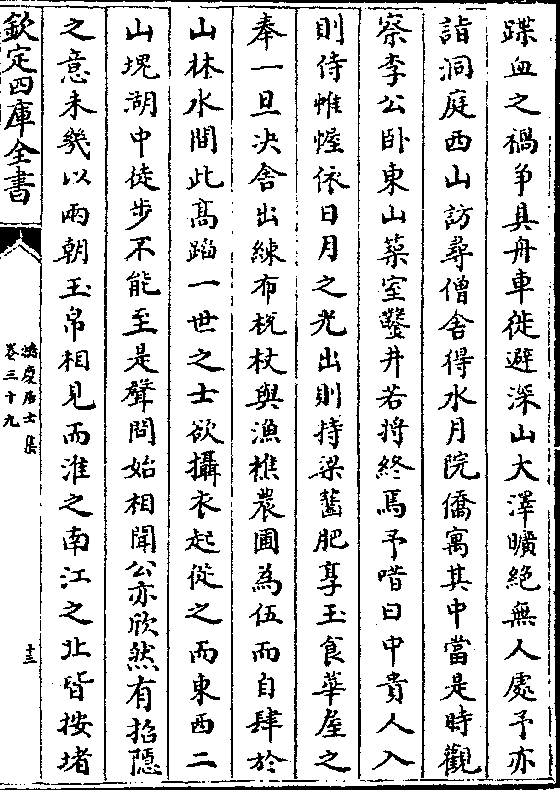 蹀血之禍争具舟車徙避深山大澤曠絶無人處予亦
詣洞庭西山訪尋僧舎得水月院僑寓其中當是時觀
察李公卧東山築室鑿井若將終焉予喈曰中貴人入
則侍帷幄依日月之光出則持梁齧肥享玉食華屋之
奉一旦决舎出練布梲杖與漁樵農圃為伍而自肆於
山林水間此髙蹈一世之士欲攝衣起從之而東西二
山塊湖中徒步不能至是聲問始相聞公亦欣然有招隠
之意未幾以兩朝玉帛相見而淮之南江之北皆按堵
欽定四庫全書
鴻慶居士集
卷三十九
十三